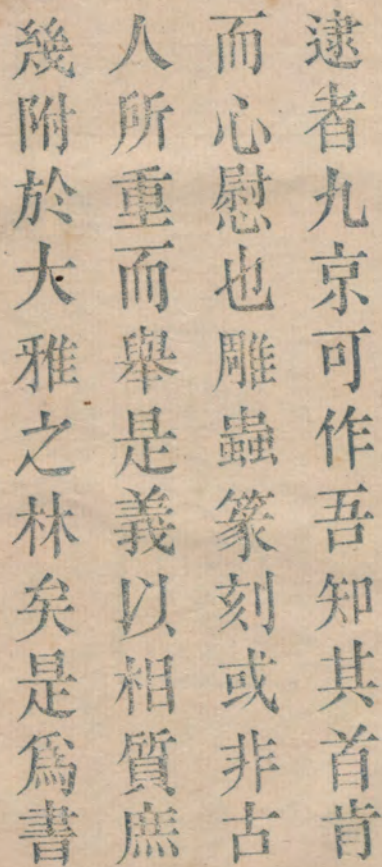 逮者九京可作吾知其首肯
而心慰也雕蟲篆刻或非古
人所重而舉是義以相質庶
幾附於大雅之林矣是爲書